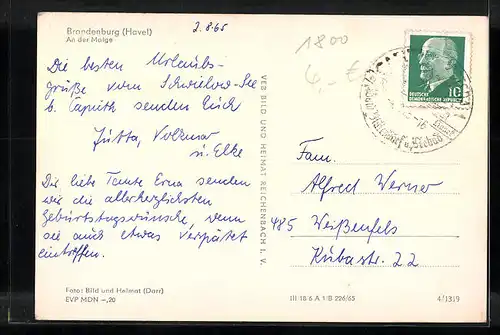 Brandenburg (Havel)
An der Malge
2.8.65
Die besten Urlaubs-
grüße vom Schwielow-See
b. Caputh senden Euch
Jutta, Volkmar
u. Elke
Der liebe Tante Erna senden
wir die allerherzlichsten
Geburtstagswünsche, wenn
sie auch etwas verspätet
eintreffen.
Foto: Bild und Heimat (Darr)
EVP MDN –,20
VEB BILD UND HEIMAT REICHENBACH I. V.
1800
6,- €
DEUTSCHE
DEMOKRATISCHE REPUBLIK
10
Fam.
Alfred Werner
485 Weißenfels
Kubastr. 22
III 18 6 A 1/B 226/65
4/1319